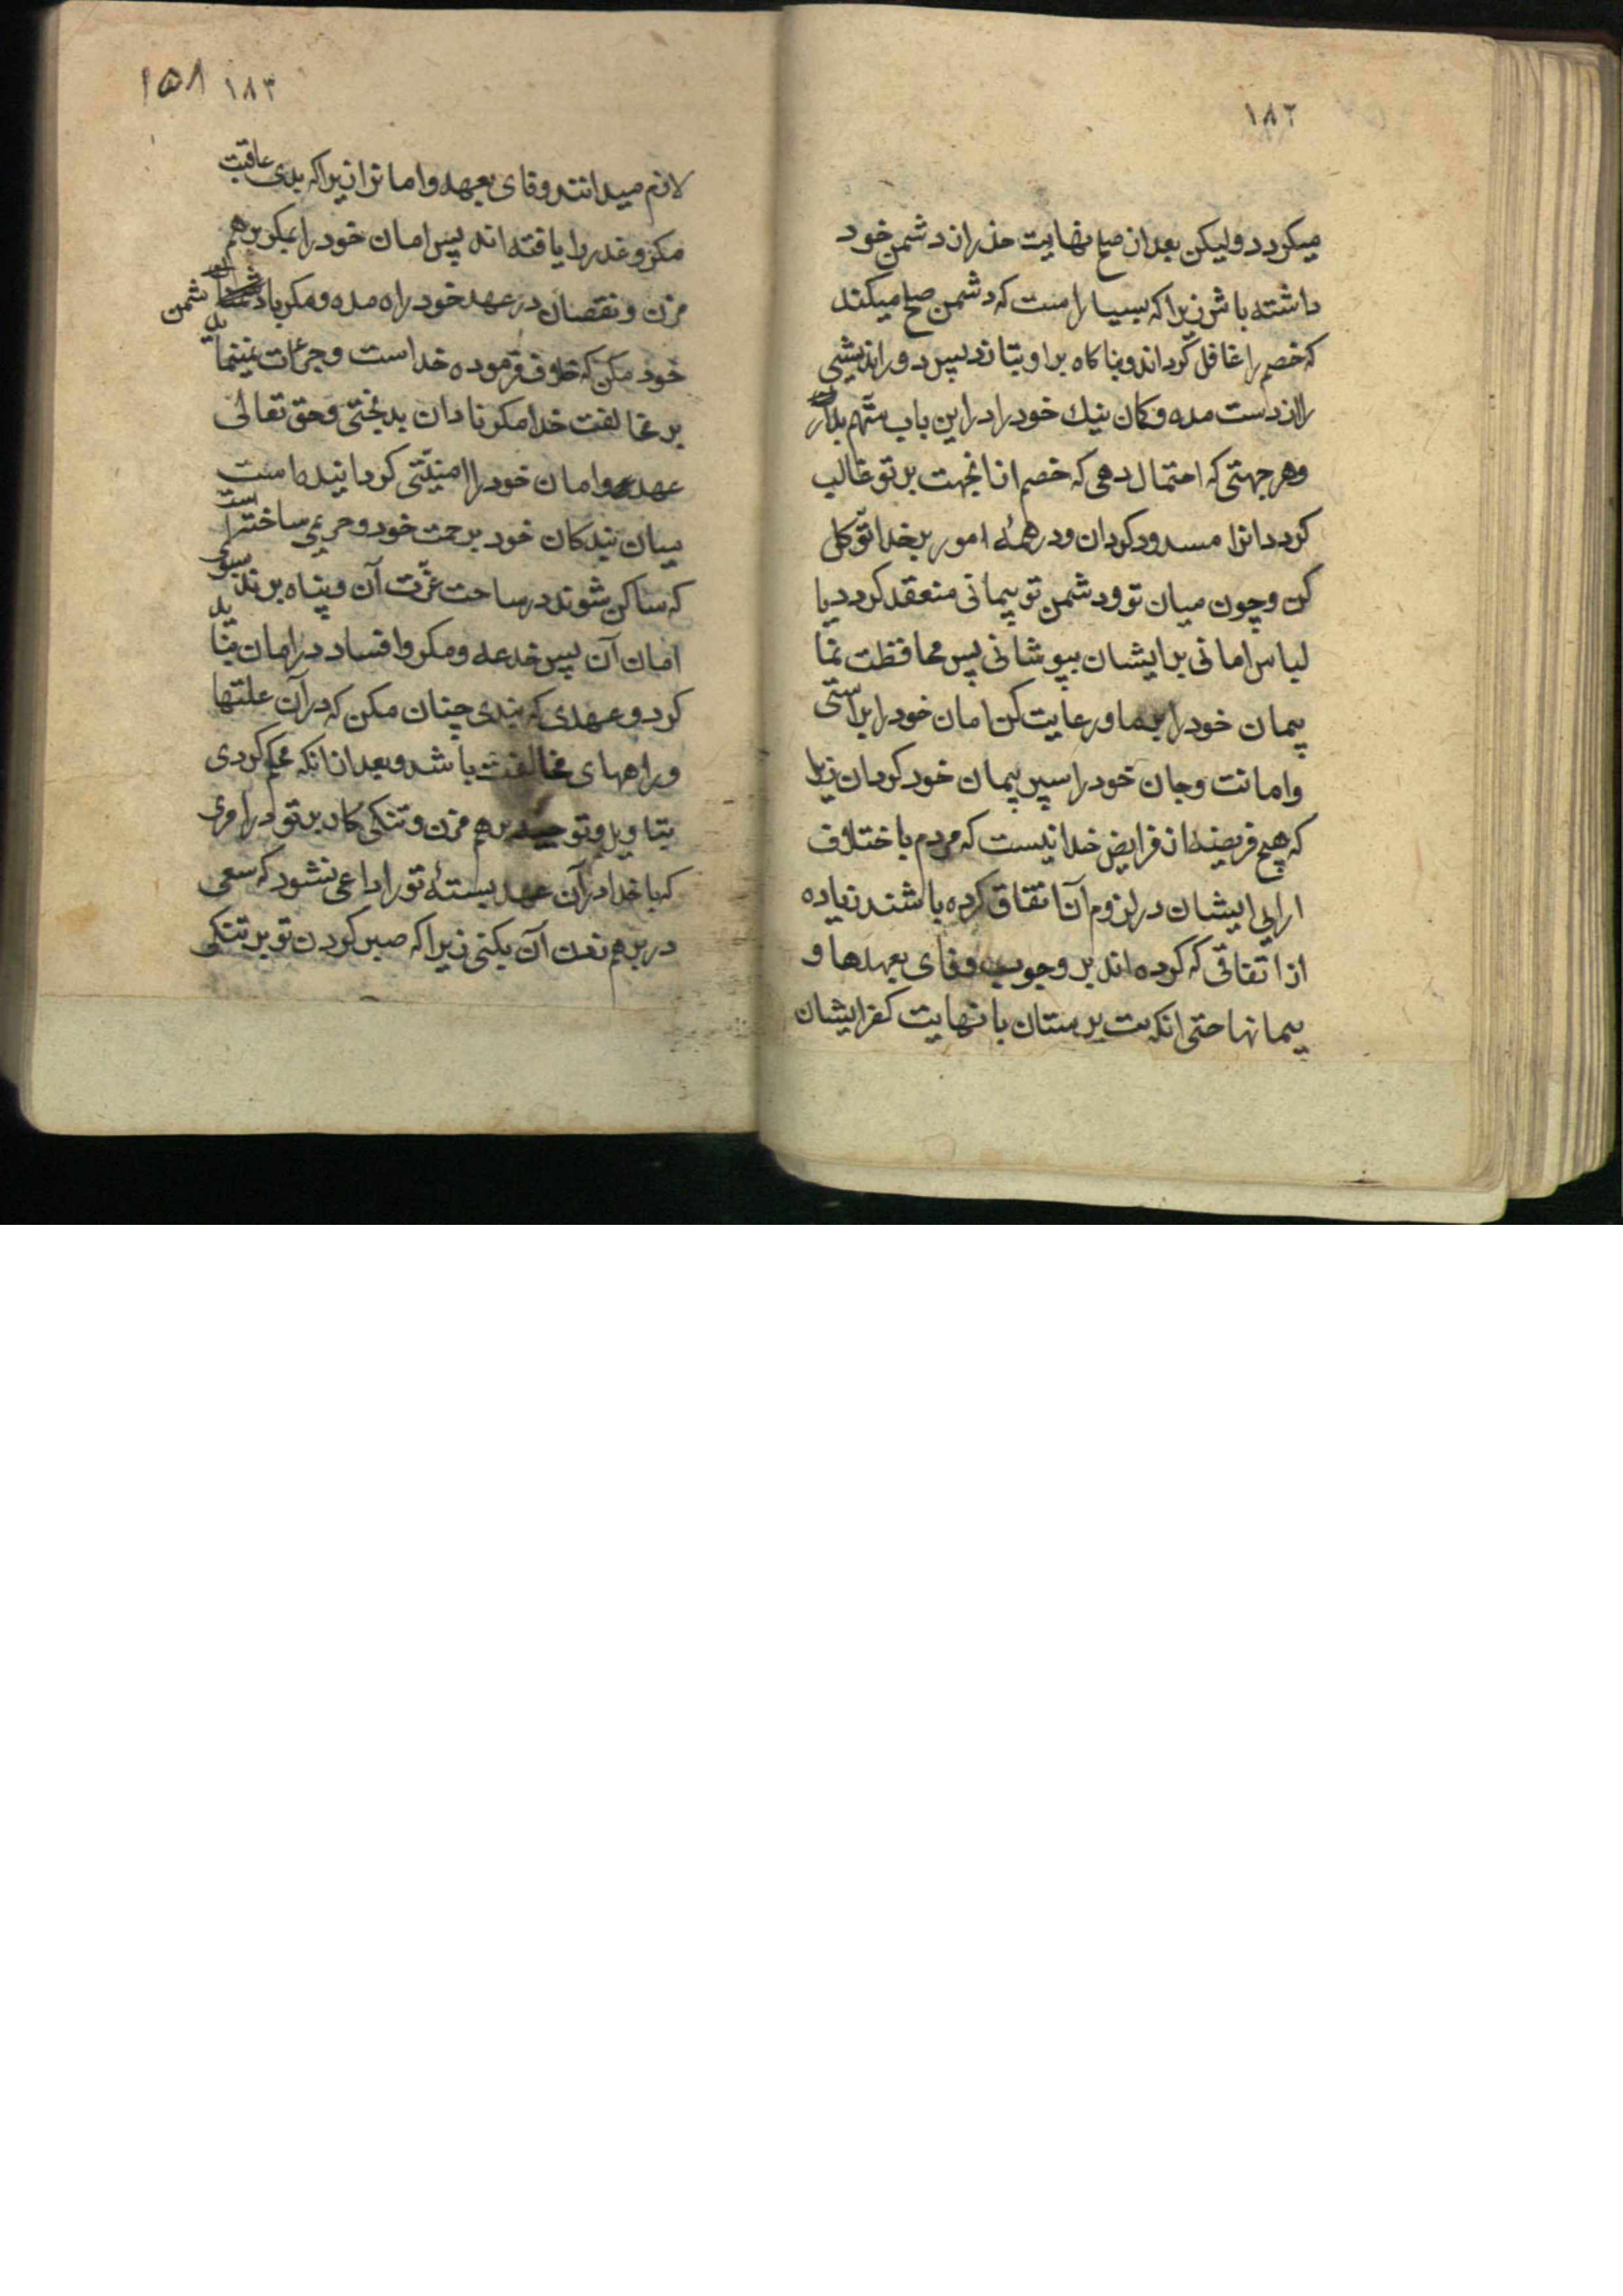 ١٨٢
میکردد ولیکن بعد از صلح نهایت حذر از دشمن خود
داشته باش زیرا که بسیار است که دشمن صلح میکند
که خصم را غافل کرداند و بناکاه بر او بتازد پس دوراندیشی
را از دست مده و کمان نیک خود را در این باب متّهم بدار
وهر جهتی که احتمال دهی که خصم از انجهت بر تو غالب
کردد انرا مسدود کردان ودر همهٔ امور بر خدا توّکل
کن وچون میان تو ودشمن تو پیمانی منعقد کردد یا
لباس امانی بر ایشان بپوشانی پس محافظت نما
پیمان خود را بوفا ورعایت کن امان خود را براستی
وامانت وجان خود را سپر پیمان خود کردان زیرا
که هیچ فریضهٔ از فرایض خدا نیست که مردم با اختلاف
ارای ایشان در لزوم آن اتفاق کرده باشند زیاده
از اتفاقی که کرده اند بر وجوب وفای بعهدها و
پیمانها حتی انکه بت پرستان با نهایت کفر ایشان
١٨٣ ١٥٨
لازم میدانند وفای بعهد واما نرا زیرا که بدی عاقبت
مکر و غدر را یافته اند پس امان خود را بمکر برهم
مزن و نقصان در عهد خود راه مده ومکر با دشمن
خود مکن که خلاف فرموده خداست وجرءات نمینماید
بر مخالفت خدا مکر نادان بدبختی وحق تعالی
عهد وامان خود را امنیّتی کردانیده است
میان بندکان خود برحمت خود وحریمی ساخته است
که ساکن شوند در ساحت عزّت آن وپناه برند بسوی
امان آن پس خدعه ومکر وافساد در امان نباید
کرد و عهدی که بندی چنان مکن که در آن علتها
وراههای مخالفت باشد وبعد از انکه محکم کردی
بتاویل وتوجیه برهم مزن و تنکی کار بر تو در امری
که با خدا در آن عهد بستهٔ تو را داعی نشود که سعی
در برهم زدن آن بکنی زیرا که صبر کردن تو بر تنکی